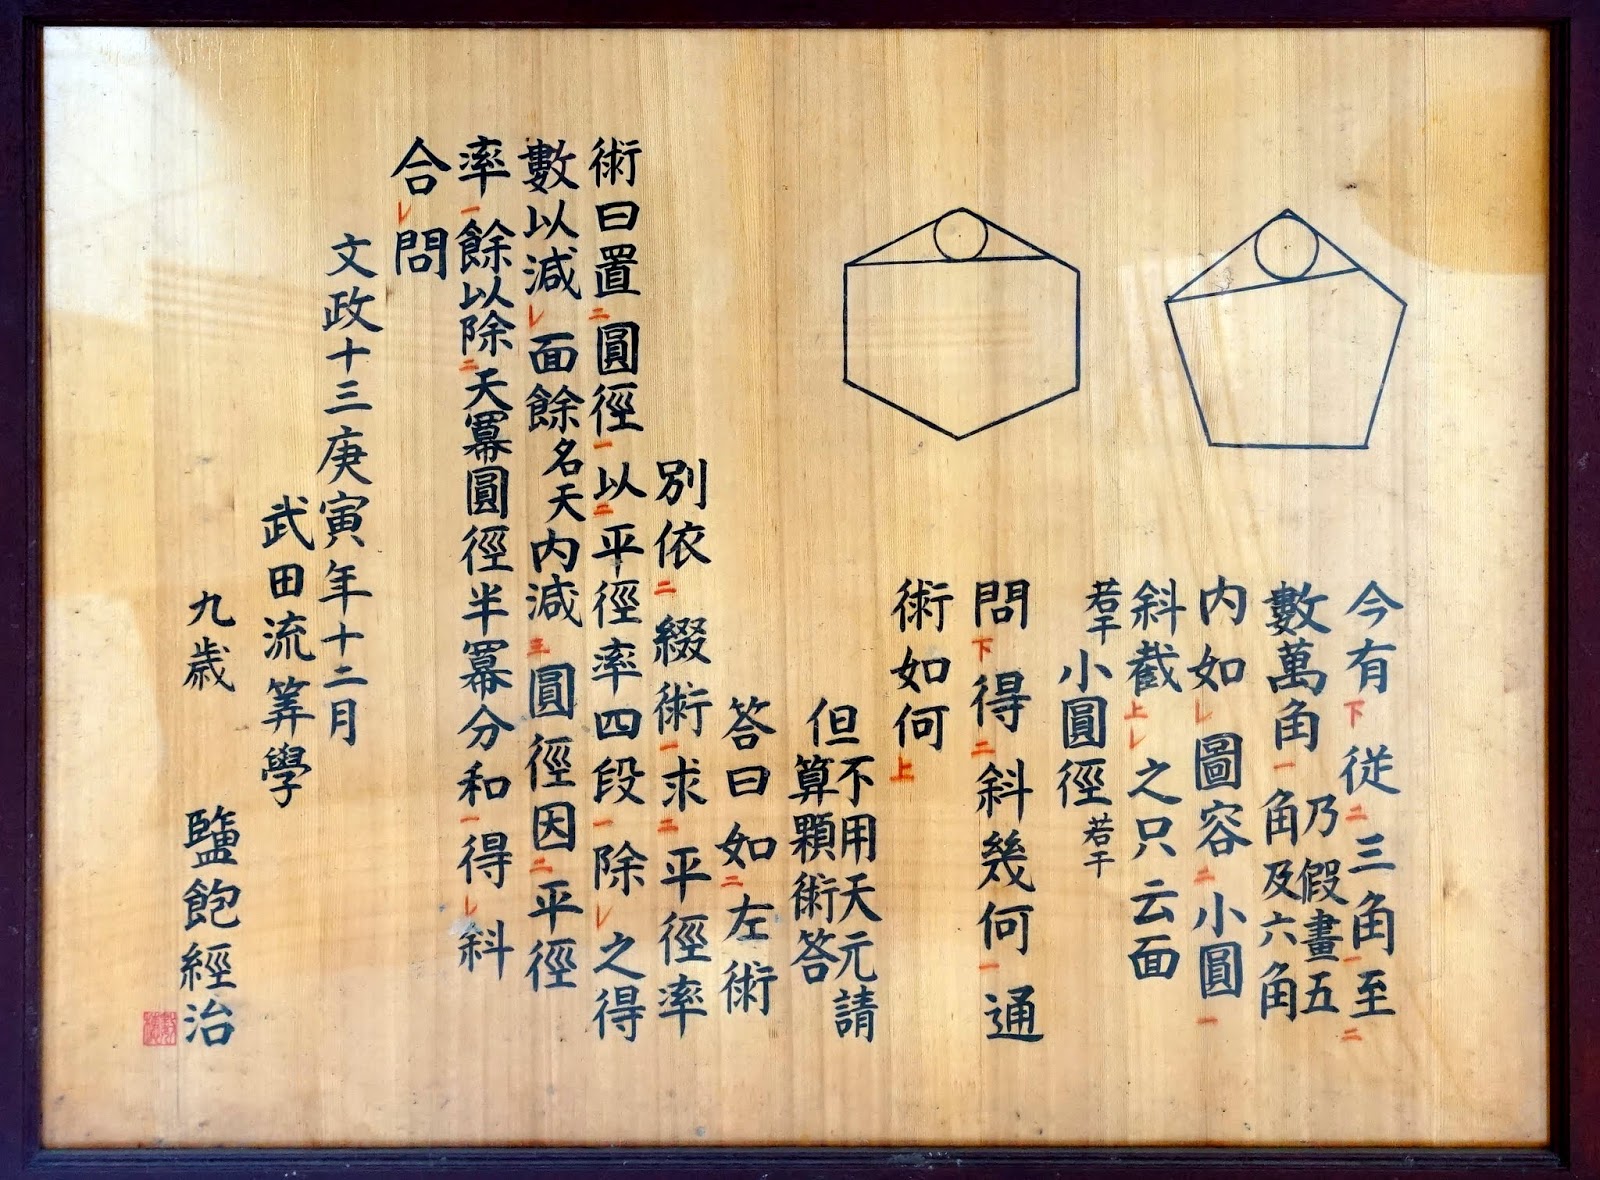 今有従三角至
數萬角乃假畫五角及六角
内如圖容小圓
斜截之只云面
若干小圓徑若干
問得斜幾何通
術如何
但不用天元請算顆術答
答曰如左術
別依綴術求平徑率
術曰置圓徑以平徑率四段除之得
數以減面餘名天内減圓徑因平徑
率餘以除天冪圓徑半冪分和得斜
合問
文政十三庚寅年十二月
武田流筭學
九歳 鹽飽經治